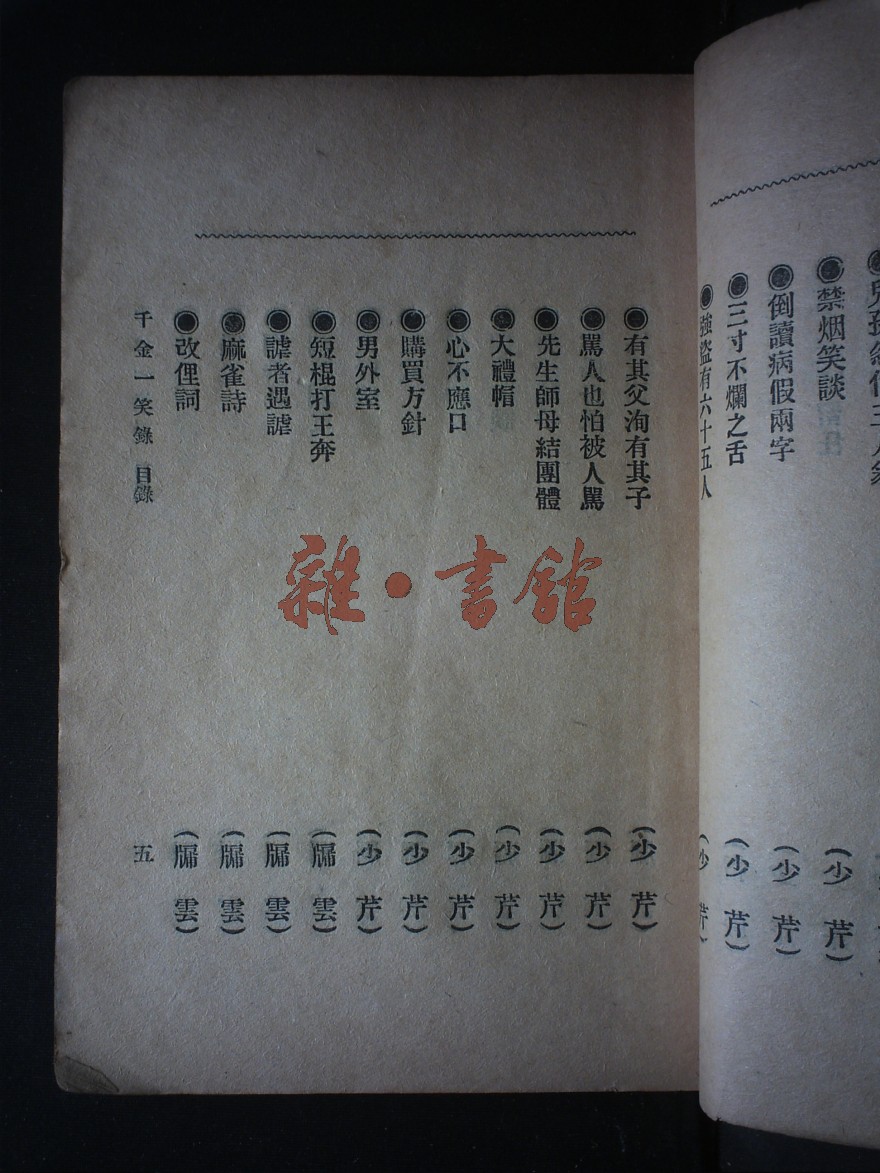 禁烟笑談 (少芹)
●倒讀病假兩字 (少芹)
●三寸不爛之舌 (少芹)
●強盜有六十五人 (少芹)
●有其父洵有其子 (少芹)
●罵人也怕被人罵 (少芹)
●先生師母結團體 (少芹)
●大禮帽 (少芹)
●心不應口 (少芹)
●購買方針 (少芹)
●男外室 (少芹)
●短棍打王奔 (牖雲)
●謔者遇謔 (牖雲)
●麻雀詩 (牖雲)
●改俚詞 (牖雲)
千金一笑錄 目錄 五
雜·書館